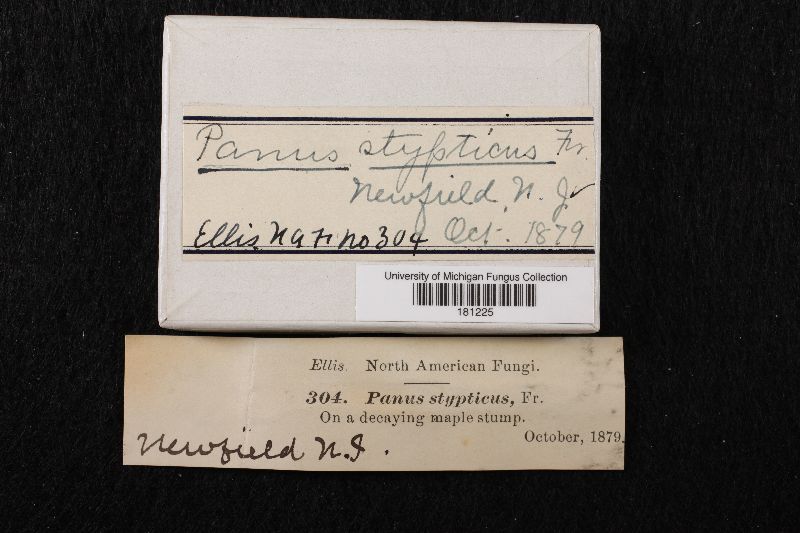 Panus stypticus Fr.
Newfield, N. J.
Ellis N A F no 304 Oct. 1879
University of Michigan Fungus Collection
181225
Ellis. North American Fungi.
304. Panus stypticus, Fr.
On a decaying maple stump.
October, 1879.
Newfield N.J.